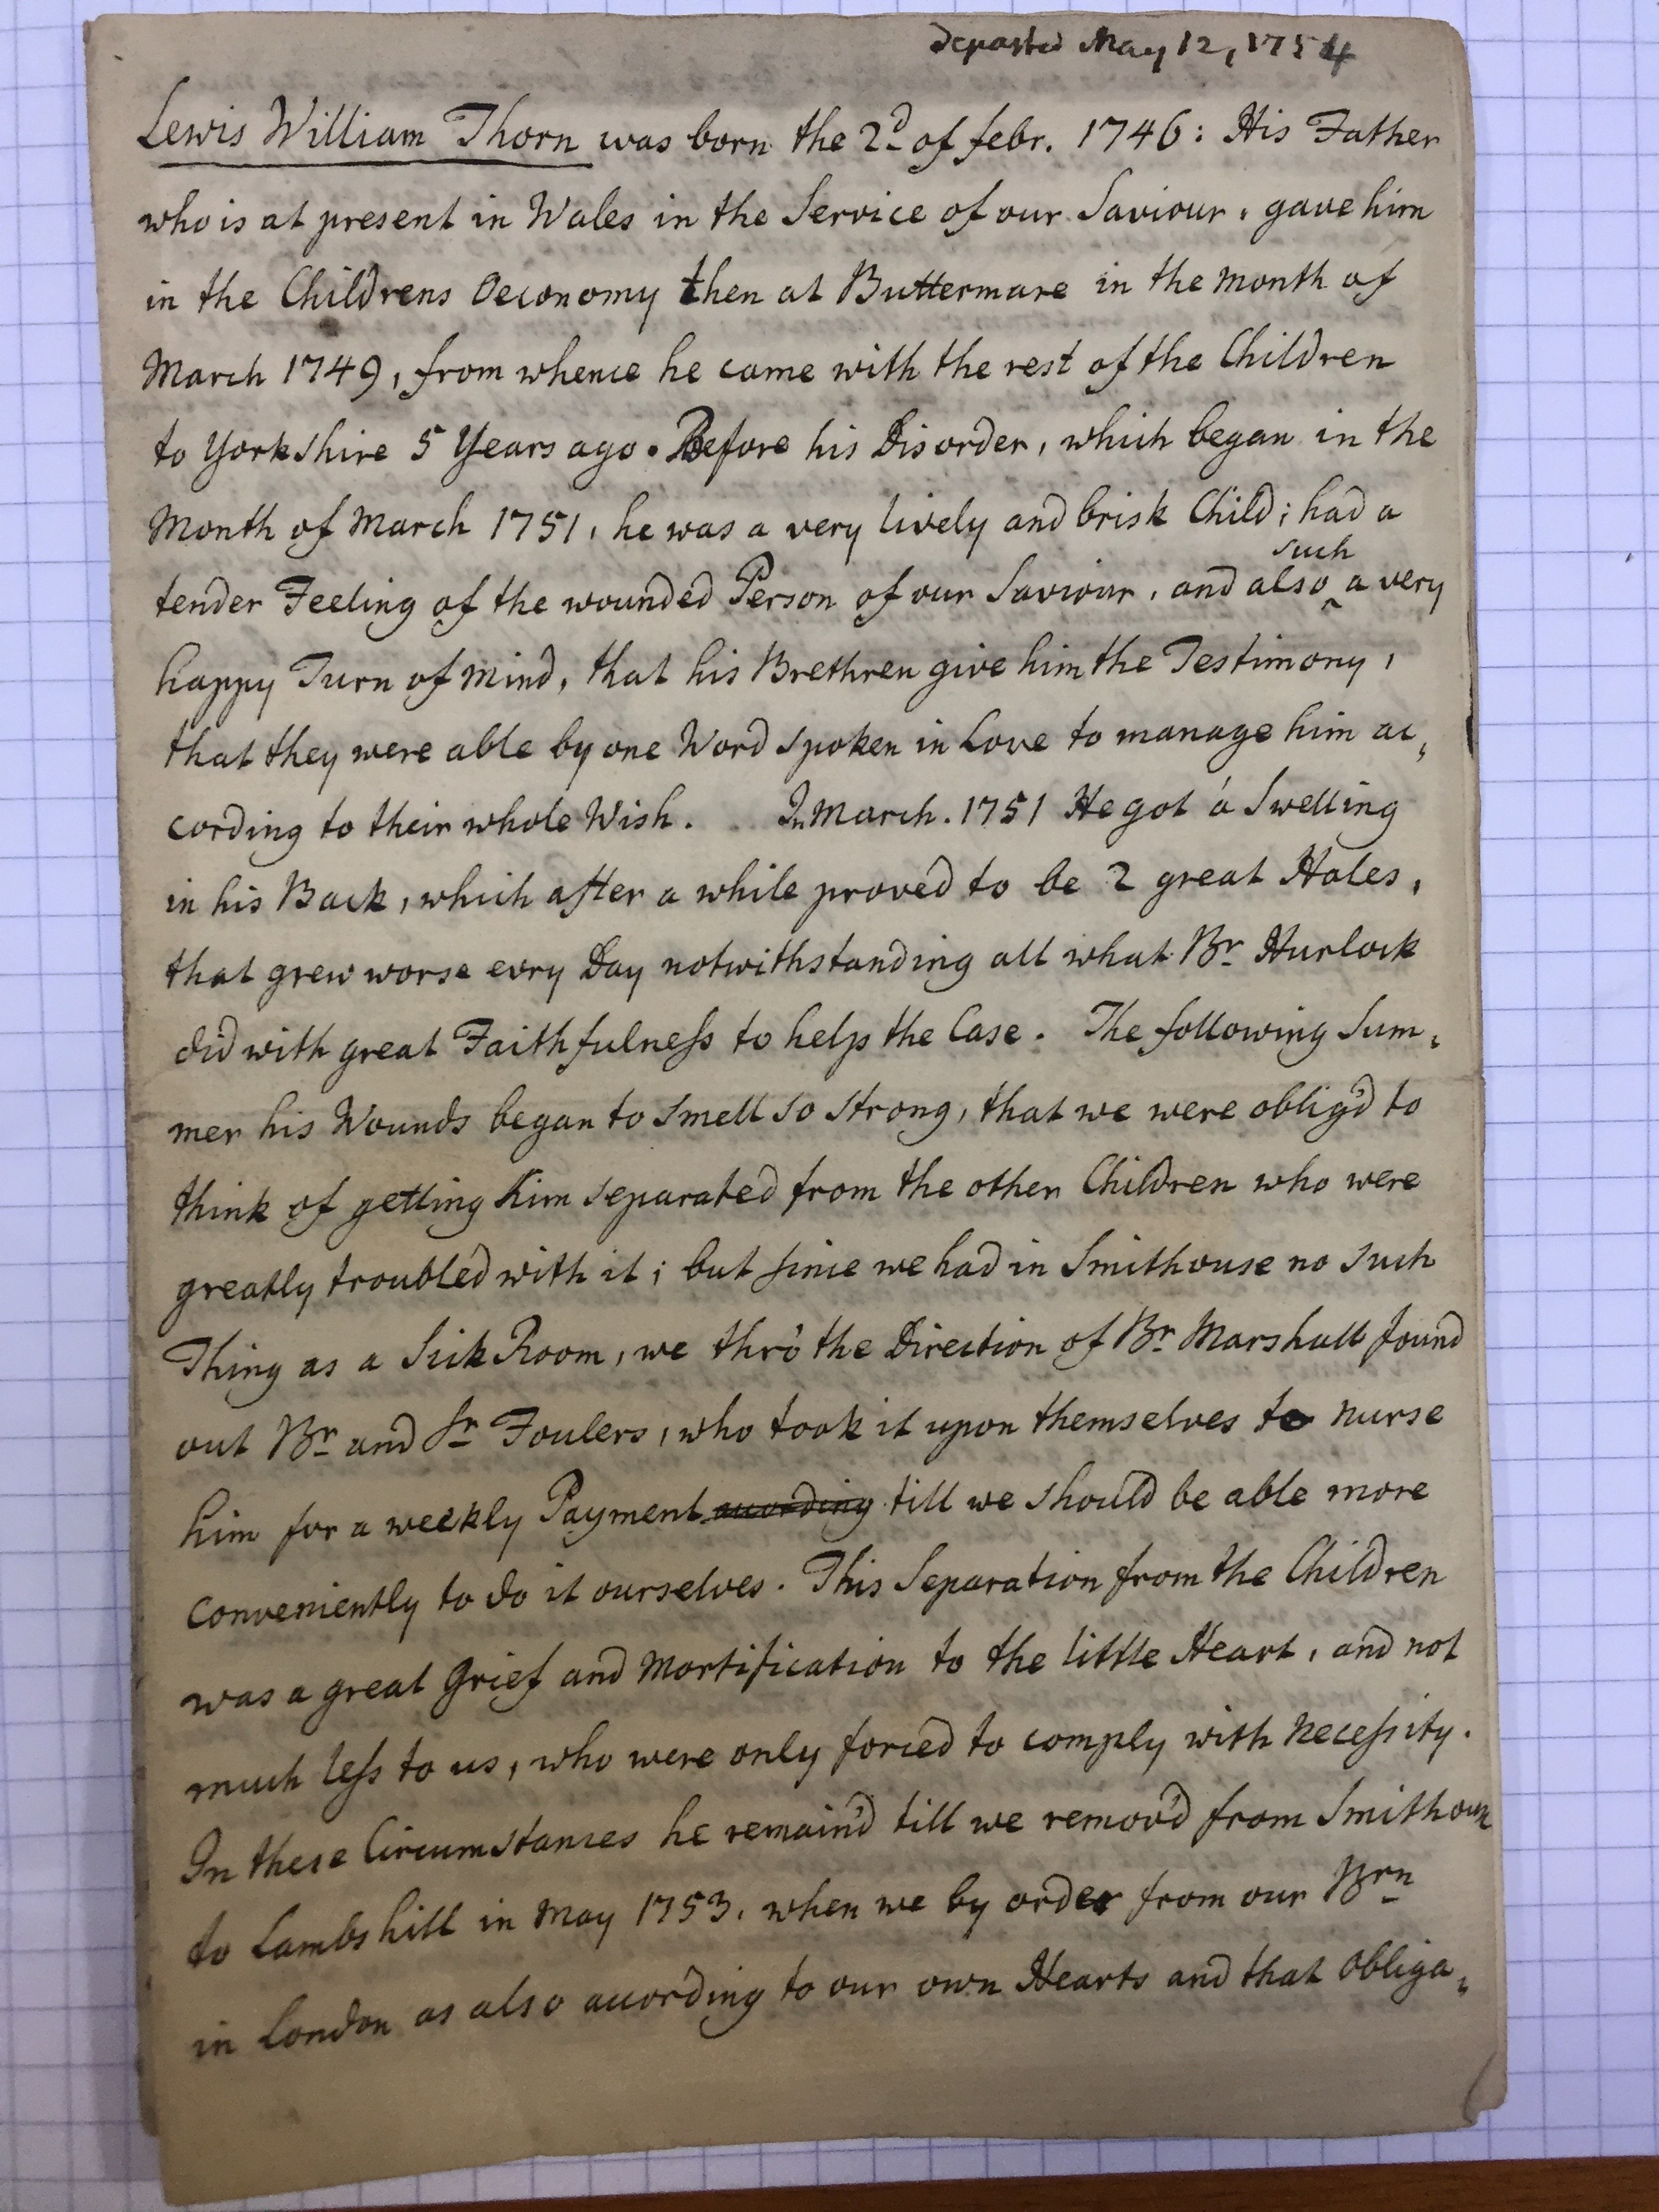 Departed May 12, 1754
Lewis William Thorn was born the 2d of febr. 1746: His Father
who is at present in Wales in the Service of our Saviour, gave him
in the Childrens Oeconomy then at Buttermare in the Month of
March 1749, from whence he came with the rest of the Children
to Yorkshire 5 Years ago. Before his Disorder, which began in the
Month of March 1751, he was a very lively and brisk Child; had a
such
tender Feeling of the wounded Person of our Saviour, and also ‸ a very
happy Turn of Mind, that his Brethren give him the Testimony,
that they were able by one Word spoken in Love to manage him ac,
cording to their whole Wish. In March. 1751 He got a Swelling
in his Back, which after a while proved to be 2 great Holes,
that grew worse evry Day notwithstanding all what Br Hurlock
did with great Faithfulness to help the Case. The following Sum,
mer his Wounds began to smell so strong, that we were oblig'd to
think of getting him separated from the other Children who were
greatly troubled with it; but since we had in Smithouse no such
Thing as a Sick Room, we thro' the Direction of Br Marshall found
out Br and Sr Foulers, who took it upon themselves to nurse
him for a weekly Payment according till we should be able more
conveniently to do it ourselves. This Separation from the Children
was a great Grief and Mortification to the little Heart, and not
much less to us, who were only forced to comply with Necessity.
In these Circumstances he remain'd till we remov'd from Smithouse
to Lambshill in May 1753, when we by order from our Brn
in London as also according to our own Hearts and that Obliga,